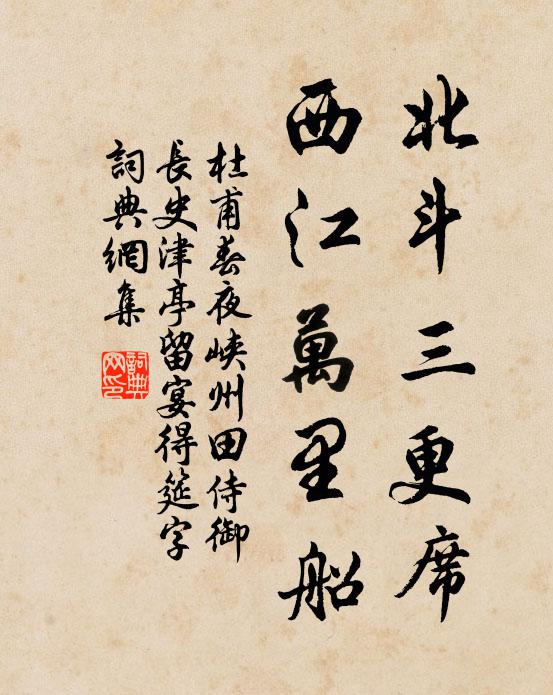 北斗三更席
西江萬里船
杜甫春夜峽州田侍御
長史津亭留宴得筵字
詞典網集
詞典網印